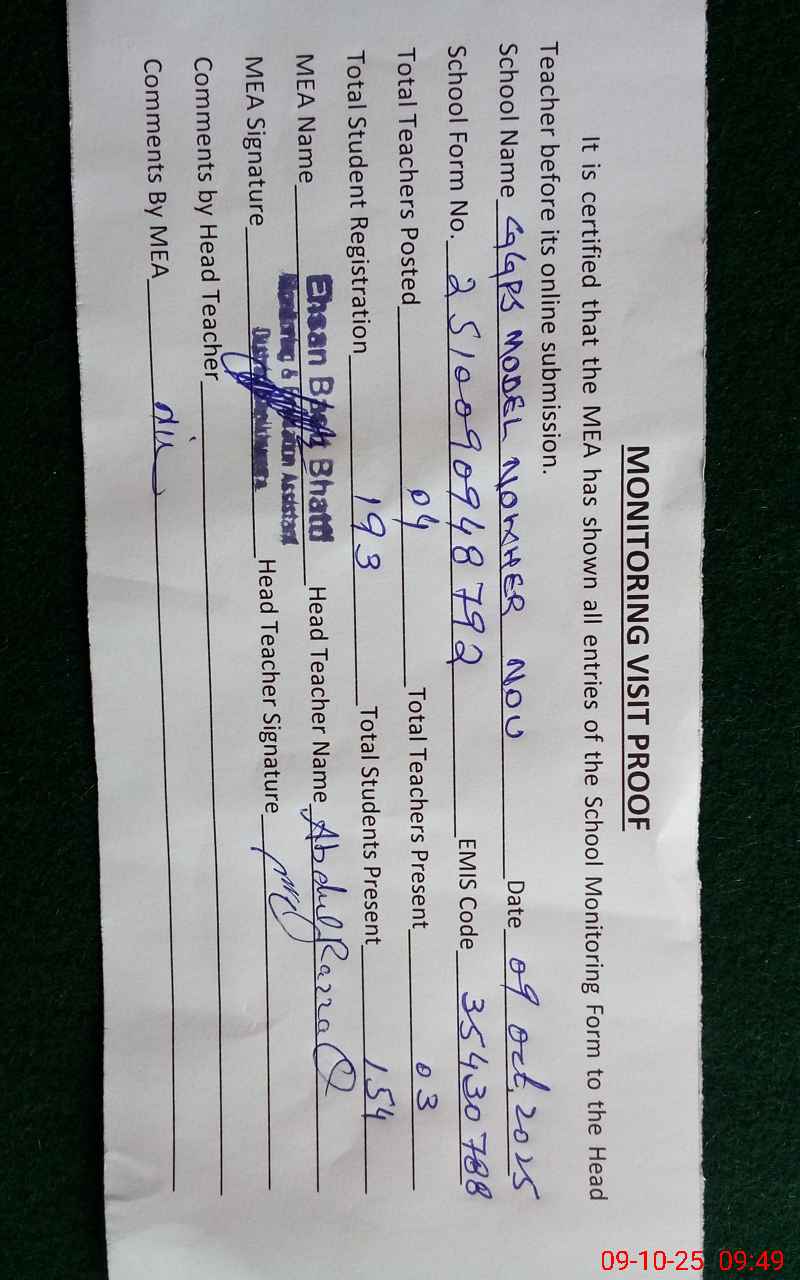 MONITORING VISIT PROOF
It is certified that the MEA has shown all entries of the School Monitoring Form to the Head
Teacher before its online submission.
School Name GGPS MODEL NOWHER NOU Date 09 Oct, 2025
School Form No. 2510090948792 EMIS Code 35430788
Total Teachers Posted 04 Total Teachers Present 03
Total Student Registration 193 Total Students Present 154
MEA Name Ehsan Bhatti Head Teacher Name Abdul Razzaq
Monitoring & Assistant
MEA Signature Head Teacher Signature
Comments by Head Teacher
Comments By MEA
09-10-25 09:49